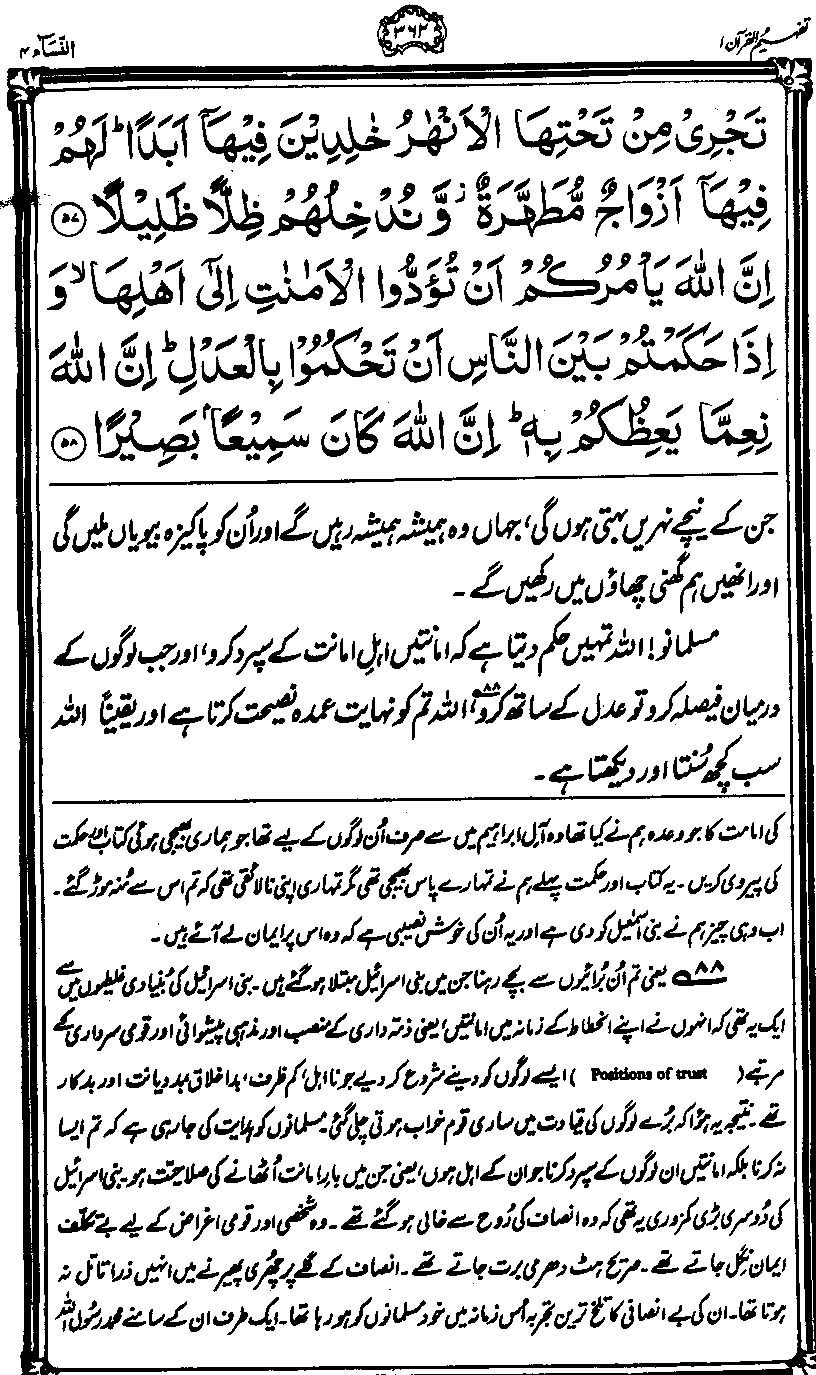 تفہیم القرآن ۱
۳۶۲
النّسَآء ۴
تَجْرِیْ مِنْ تَحْتِهَا الْاَنْهٰرُ خٰلِدِیْنَ فِیْهَآ اَبَدًا ؕ لَهُمْ
فِیْهَآ اَزْوَاجٌ مُّطَهَّرَةٌ ؗ وَّ نُدْخِلُهُمْ ظِلًّا ظَلِیْلًا ۵۷
اِنَّ اللهَ یَاْمُرُكُمْ اَنْ تُؤَدُّوا الْاَمٰنٰتِ اِلٰۤی اَهْلِهَا ۙ وَ
اِذَا حَكَمْتُمْ بَیْنَ النَّاسِ اَنْ تَحْكُمُوْا بِالْعَدْلِ ؕ اِنَّ اللهَ
نِعِمَّا یَعِظُكُمْ بِهٖ ؕ اِنَّ اللهَ كَانَ سَمِیْعًۢا بَصِیْرًا ۵۸
جن کے نیچے نہریں بہتی ہوں گی، جہاں وہ ہمیشہ ہمیشہ رہیں گے اور اُن کو پاکیزہ بیویاں ملیں گی
اور انھیں ہم گھنی چھاؤں میں رکھیں گے۔
مسلمانو! اللہ تمہیں حکم دیتا ہے کہ امانتیں اہلِ امانت کے سپرد کرو، اور جب لوگوں کے
درمیان فیصلہ کرو تو عدل کے ساتھ کرو،۸۸ اللہ تم کو نہایت عمدہ نصیحت کرتا ہے اور یقیناً اللہ
سب کچھ سُنتا اور دیکھتا ہے۔
کی امامت کا جو وعدہ ہم نے کیا تھا وہ آلِ ابراہیم میں سے صرف اُن لوگوں کے لیے تھا جو ہماری بھیجی ہوئی کتاب اور حکمت
کی پیروی کریں۔ یہ کتاب اور حکمت پہلے ہم نے تمہارے پاس بھیجی تھی مگر تمہاری اپنی نالائقی تھی کہ تم اس سے مُنہ موڑ گئے۔
اب وہی چیز ہم نے بنی اسمٰعیل کو دی ہے اور یہ اُن کی خوش نصیبی ہے کہ وہ اس پر ایمان لے آئے ہیں۔
۸۸ یعنی تم اُن بُرائیوں سے بچے رہنا جن میں بنی اسرائیل مبتلا ہو گئے ہیں۔ بنی اسرائیل کی بُنیادی غلطیوں میں سے
ایک یہ تھی کہ انہوں نے اپنے انحطاط کے زمانہ میں امانتیں، یعنی ذمّہ داری کے منصب اور مذہبی پیشوائی اور قومی سرداری کے
مرتبے (Positions of trust) ایسے لوگوں کو دینے شروع کر دیے جو نااہل، کم ظرف، بداخلاق، بددیانت اور بدکار
تھے۔ نتیجہ یہ ہُوا کہ بُرے لوگوں کی قیادت میں ساری قوم خراب ہوتی چلی گئی۔ مسلمانوں کو ہدایت کی جا رہی ہے کہ تم ایسا
نہ کرنا بلکہ امانتیں ان لوگوں کے سپرد کرنا جو ان کے اہل ہوں، یعنی جن میں بارِ امانت اُٹھانے کی صلاحیّت ہو۔ بنی اسرائیل
کی دُوسری بڑی کمزوری یہ تھی کہ وہ انصاف کی رُوح سے خالی ہو گئے تھے۔ وہ شخصی اور قومی اغراض کے لیے بے تکلّف
ایمان نِگل جاتے تھے۔ صریح ہٹ دھرمی برت جاتے تھے۔ انصاف کے گلے پر چُھری پھیرنے میں انہیں ذرا تامّل نہ
ہوتا تھا۔ ان کی بے انصافی کا تلخ ترین تجربہ اُس زمانہ میں خود مسلمانوں کو ہو رہا تھا۔ ایک طرف ان کے سامنے محمد رسُول اللہ